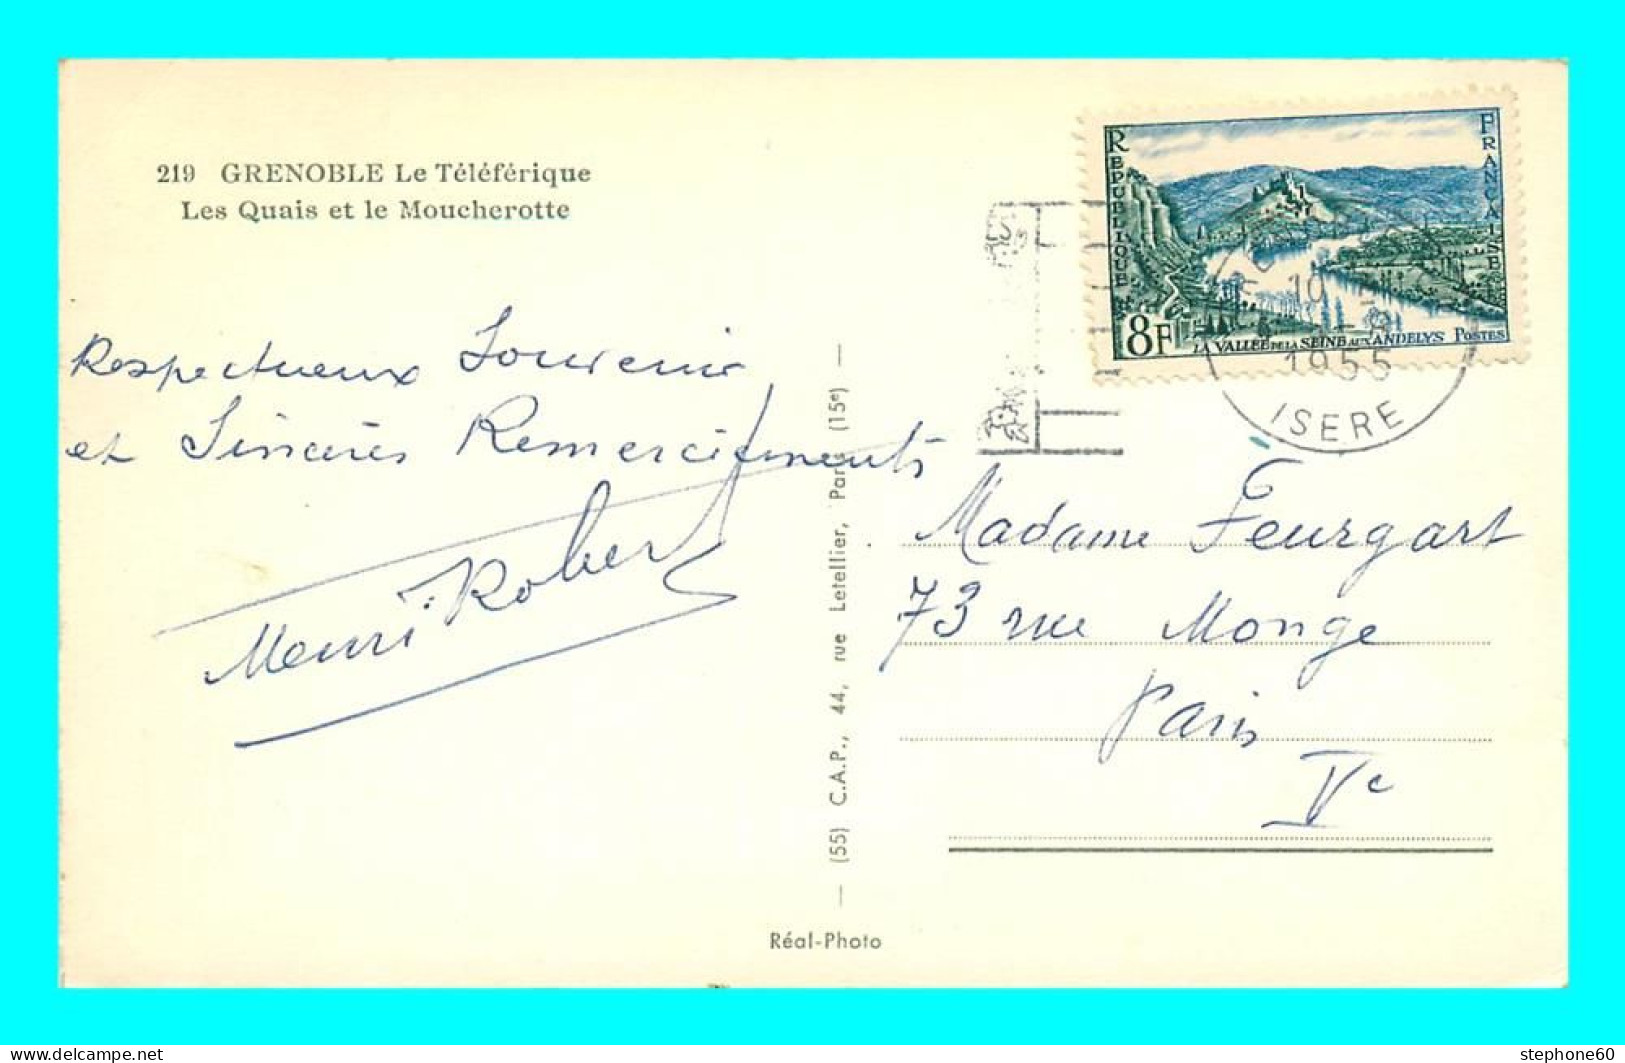 219 GRENOBLE Le Téléférique
Les Quais et le Moucherotte
Respectueux Souvenir
et Sincères Remerciements
Henri Robert
RÉPUBLIQUE
FRANÇAISE
8F
LA VALLÉE DE LA SEINE AUX ANDELYS POSTES
1955
ISERE
Madame Feurgart
73 rue Monge
Paris
Ve
— (55) C.A.P., 44, rue Letellier, Paris (15e) —
Réal-Photo
delcampe.net
stephone60